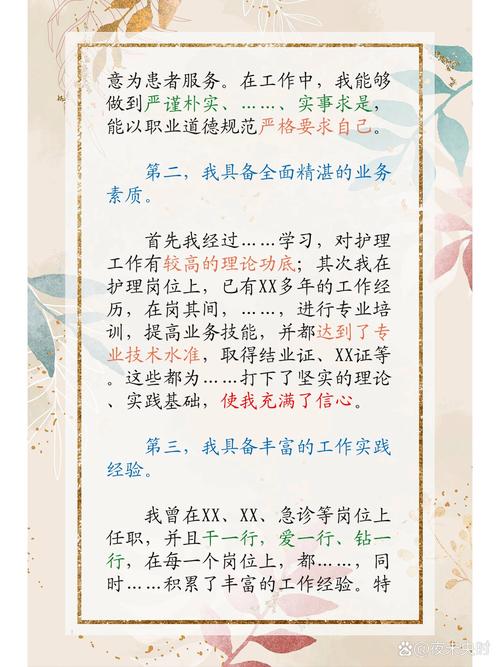 意为患者服务。在工作中，我能够
做到严谨朴实、……、实事求是，
能以职业道德规范严格要求自己。
第二，我具备全面精湛的业务
素质。
首先我经过……学习，对护理
工作有较高的理论功底；其次我在
护理岗位上，已有XX多年的工作经
历，在岗其间，……，进行专业培
训，提高业务技能，并都达到了专
业技术水准，取得结业证、XX证等
。这些都为……打下了坚实的理论
、实践基础，使我充满了信心。
第三，我具备丰富的工作实践
经验。
我曾在XX、XX、急诊等岗位上
任职，并且干一行，爱一行、钻一
行，在每一个岗位上，都……，同
时……积累了丰富的工作经验。特
@夜未央时